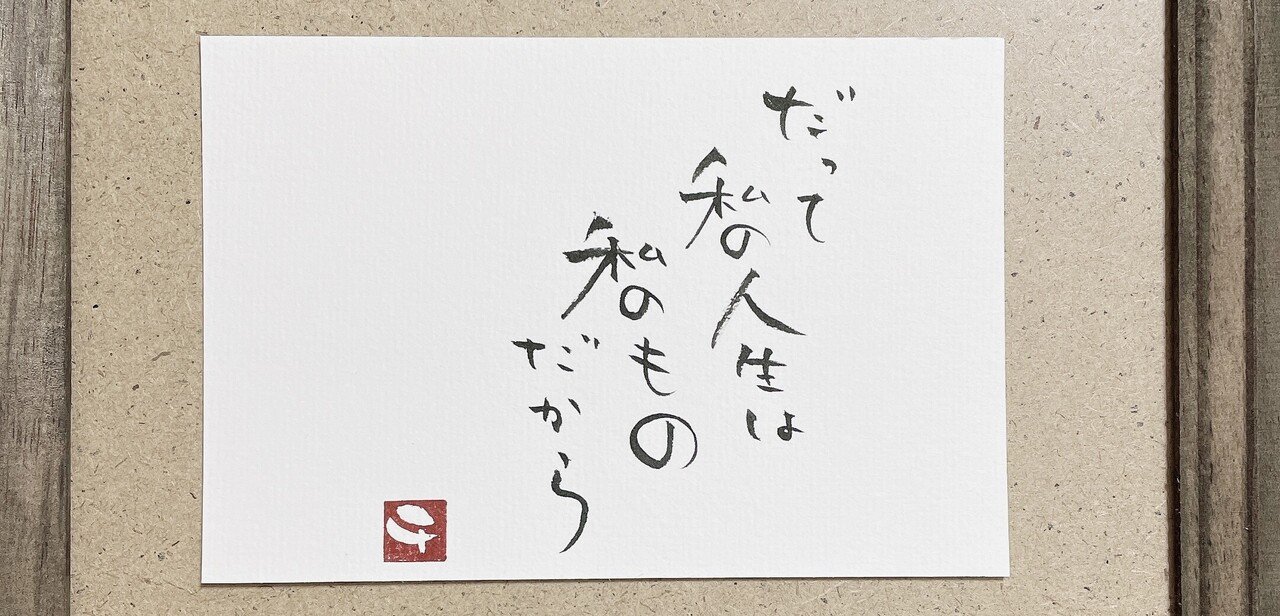 だって
私の人生は
私のもの
だから